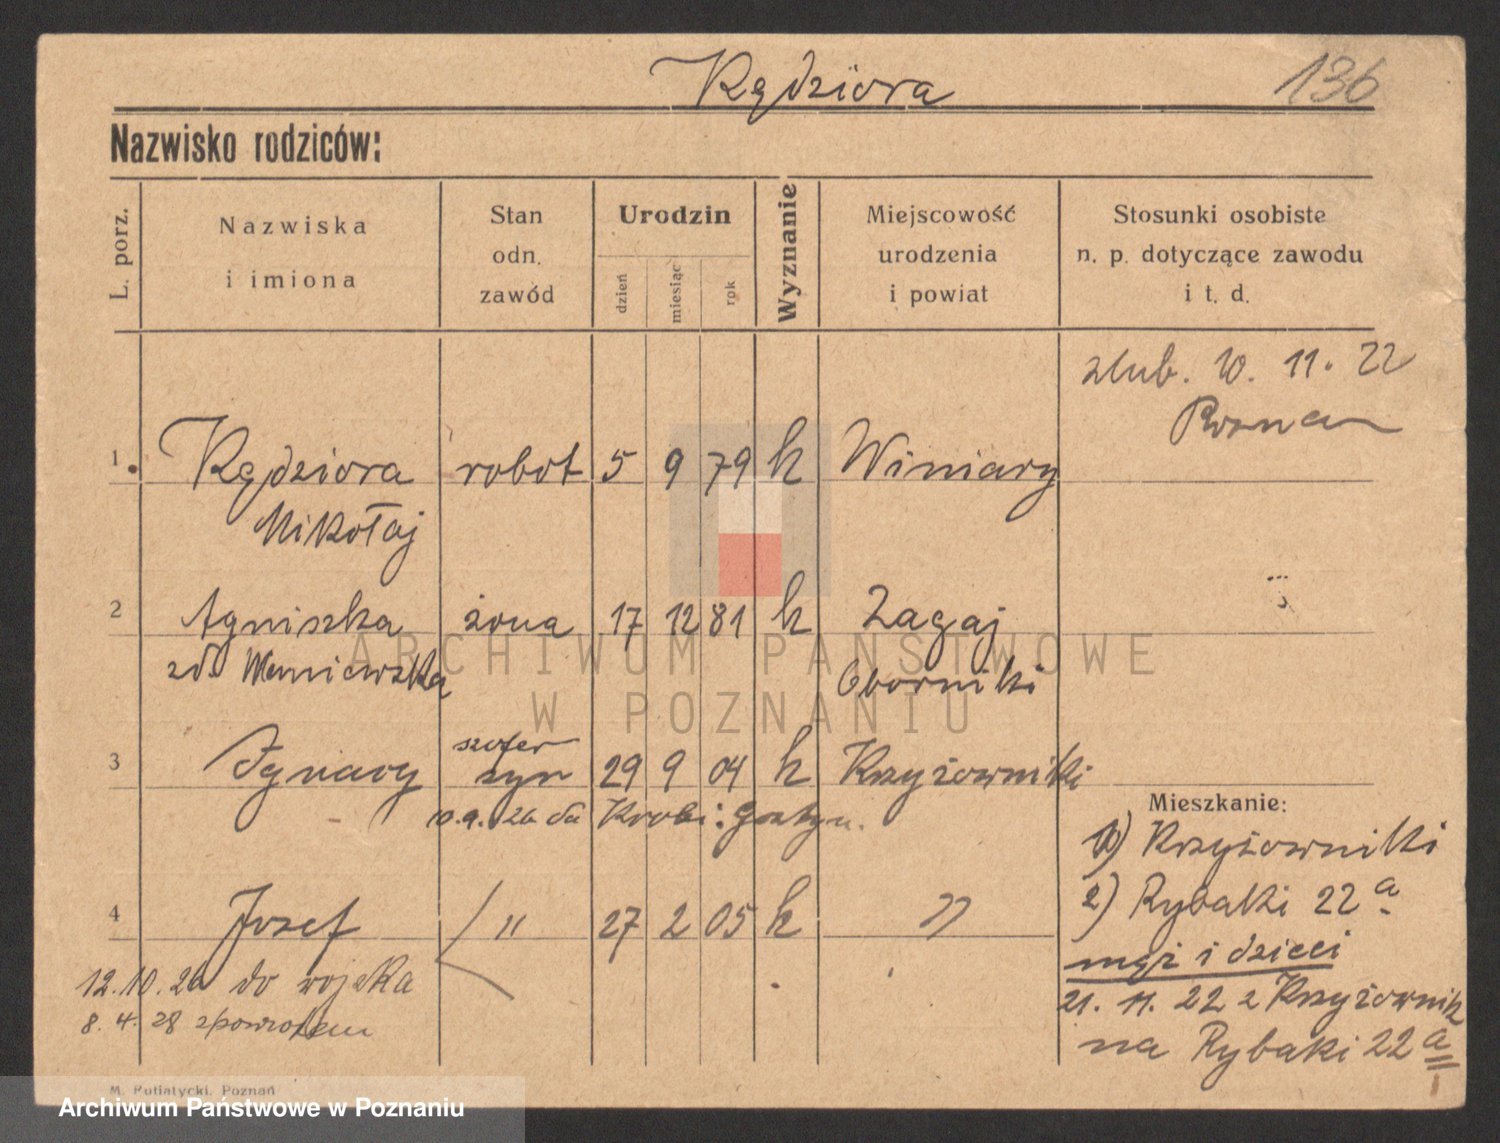 Kędziora
136
Nazwisko rodziców:
L. porz.
Nazwiska
i imiona
Stan
odn.
zawód
Urodzin
dzień
miesiąc
rok
Wyznanie
Miejscowość
urodzenia
i powiat
Stosunki osobiste
n. p. dotyczące zawodu
i t. d.
10. 11. 22
1. Kędziora robot 5 9 79 k Winiary
Mikołaj
2 Agniszka żona 17 12 81 k Zagaj
Oborniki
szofer
3 Ignacy syn 29 9 04 k Krzyżowniki
10.9.26 da Krobi: gostyn.
Mieszkanie:
1) Krzyżowniki
2) Rybaki 22 a
4 Józef " 27 2 05 k "
mąż i dzieci
12.10.26 do wojska
21. 11. 22 z Krzyżownik
8. 4. 28 z powrotem
na Rybaki 22 a
M. Putiatycki, Poznań
ARCHIWUM PAŃSTWOWE
W POZNANIU
Archiwum Państwowe w Poznaniu